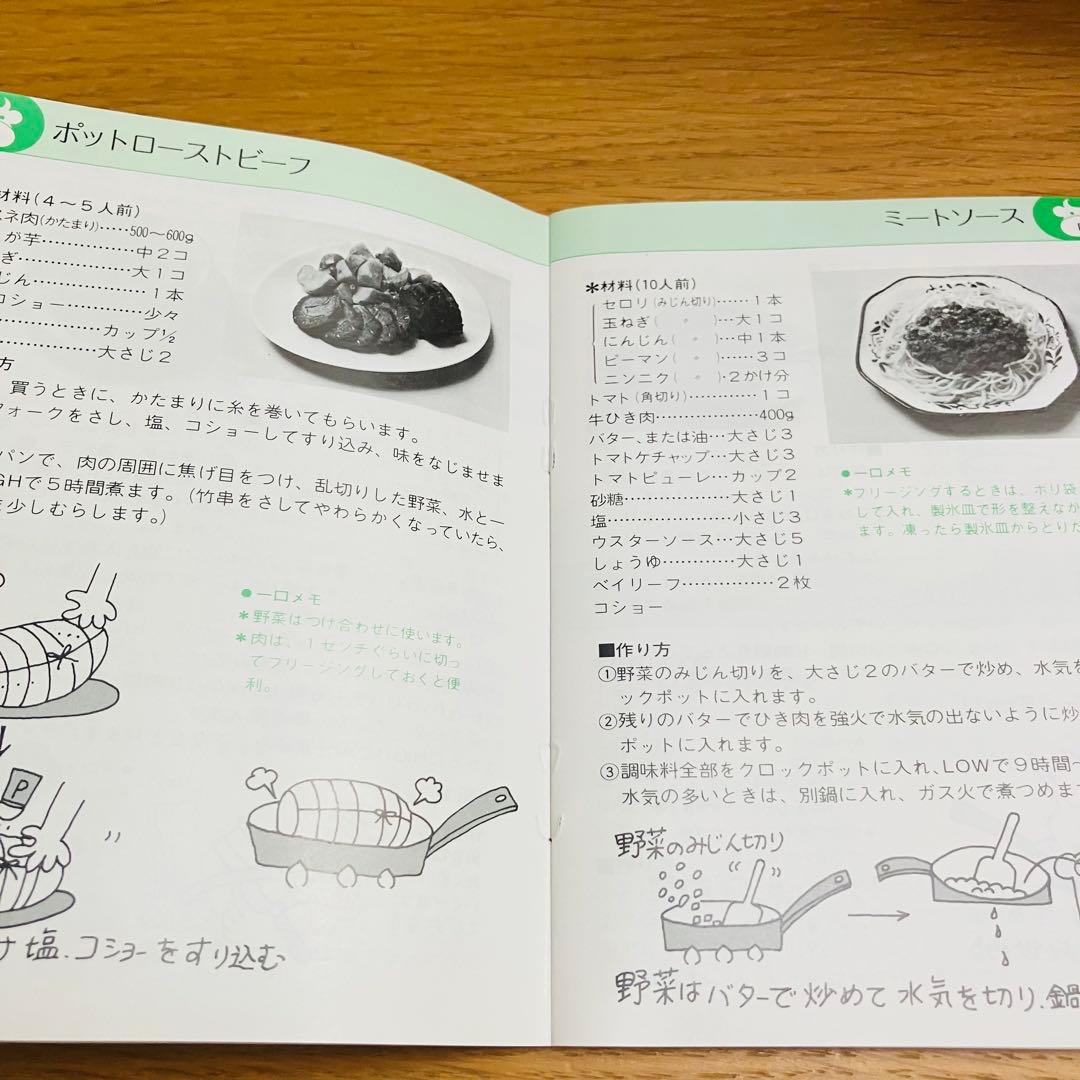 ポットローストビーフ
材料(4〜5人前)
ネ肉(かたまり)‥‥‥500〜600g
が芋‥‥‥‥‥‥中2コ
ぎ‥‥‥‥‥‥‥大1コ
じん‥‥‥‥‥‥‥1本
コショー‥‥‥‥‥少々
‥‥‥‥‥‥カップ½
‥‥‥‥‥‥大さじ2
方
買うときに、かたまりに糸を巻いてもらいます。
フォークをさし、塩、コショーしてすり込み、味をなじませま
パンで、肉の周囲に焦げ目をつけ、乱切りした野菜、水と一
GHで5時間煮ます。(竹串をさしてやわらかくなっていたら、
少しむらします。)
●一口メモ
＊野菜はつけ合わせに使います。
＊肉は、1センチぐらいに切っ
てフリージングしておくと便
利。
P
塩.コショーをすり込む
ミートソース
＊材料(10人前)
セロリ(みじん切り)‥‥‥1本
玉ねぎ(〃)‥‥大1コ
にんじん(〃)‥‥中1本
ピーマン(〃)‥‥‥3コ
ニンニク(〃)‥2かけ分
トマト(角切り)‥‥‥‥‥1コ
牛ひき肉‥‥‥‥‥‥‥400g
バター、または油‥‥大さじ3
トマトケチャップ‥‥大さじ3
トマトピューレ‥‥カップ2
砂糖‥‥‥‥‥‥‥大さじ1
塩‥‥‥‥‥‥‥‥小さじ3
ウスターソース‥‥大さじ5
しょうゆ‥‥‥‥‥大さじ1
ベイリーフ‥‥‥‥‥‥2枚
コショー
●一口メモ
＊フリージングするときは、ポリ袋
して入れ、製氷皿で形を整えなが
ます。凍ったら製氷皿からとりだ
■作り方
①野菜のみじん切りを、大さじ2のバターで炒め、水気を
ックポットに入れます。
②残りのバターでひき肉を強火で水気の出ないように炒
ポットに入れます。
③調味料全部をクロックポットに入れ、LOWで9時間〜
水気の多いときは、別鍋に入れ、ガス火で煮つめます
野菜のみじん切り
野菜はバターで炒めて水気を切り.鍋